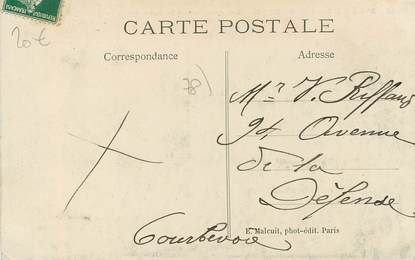 CARTE POSTALE
20€
Correspondance
Adresse
78)
Mr V. Riffaud
94 Avenue
de la
Défense
E. Malcuit, phot-édit. Paris
Courbevoie